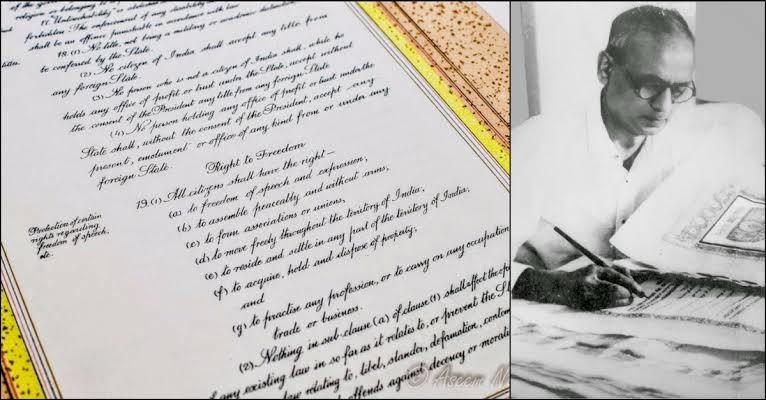 religion or belonging to
17. "Untouchability" is abolished
forbidden. The enforcement of any disability
shall be an offence punishable in accordance with law.
18. (1) No title, not being a military or academic distinction,
to be conferred by the State.
(2) No citizen of India shall accept any title from
any foreign State.
(3) No person who is not a citizen of India shall, while he
holds any office of profit or trust under the State, accept without
the consent of the President any title from any foreign State.
(4) No person holding any office of profit or trust under the
State shall, without the consent of the President, accept any
present, emolument or office of any kind from or under any
foreign State.
Right to Freedom
Protection of certain
rights regarding
freedom of speech,
etc.
19. (1) All citizens shall have the right —
(a) to freedom of speech and expression;
(b) to assemble peaceably and without arms;
(c) to form associations or unions;
(d) to move freely throughout the territory of India;
(e) to reside and settle in any part of the territory of India;
(f) to acquire, hold and dispose of property;
and
(g) to practise any profession, or to carry on any occupation
trade or business.
(2) Nothing in sub-clause (a) of clause (1) shall affect the
of any existing law in so far as it relates to, or prevent the
law relating to, libel, slander, defamation,
offends against decency or
© Aseem